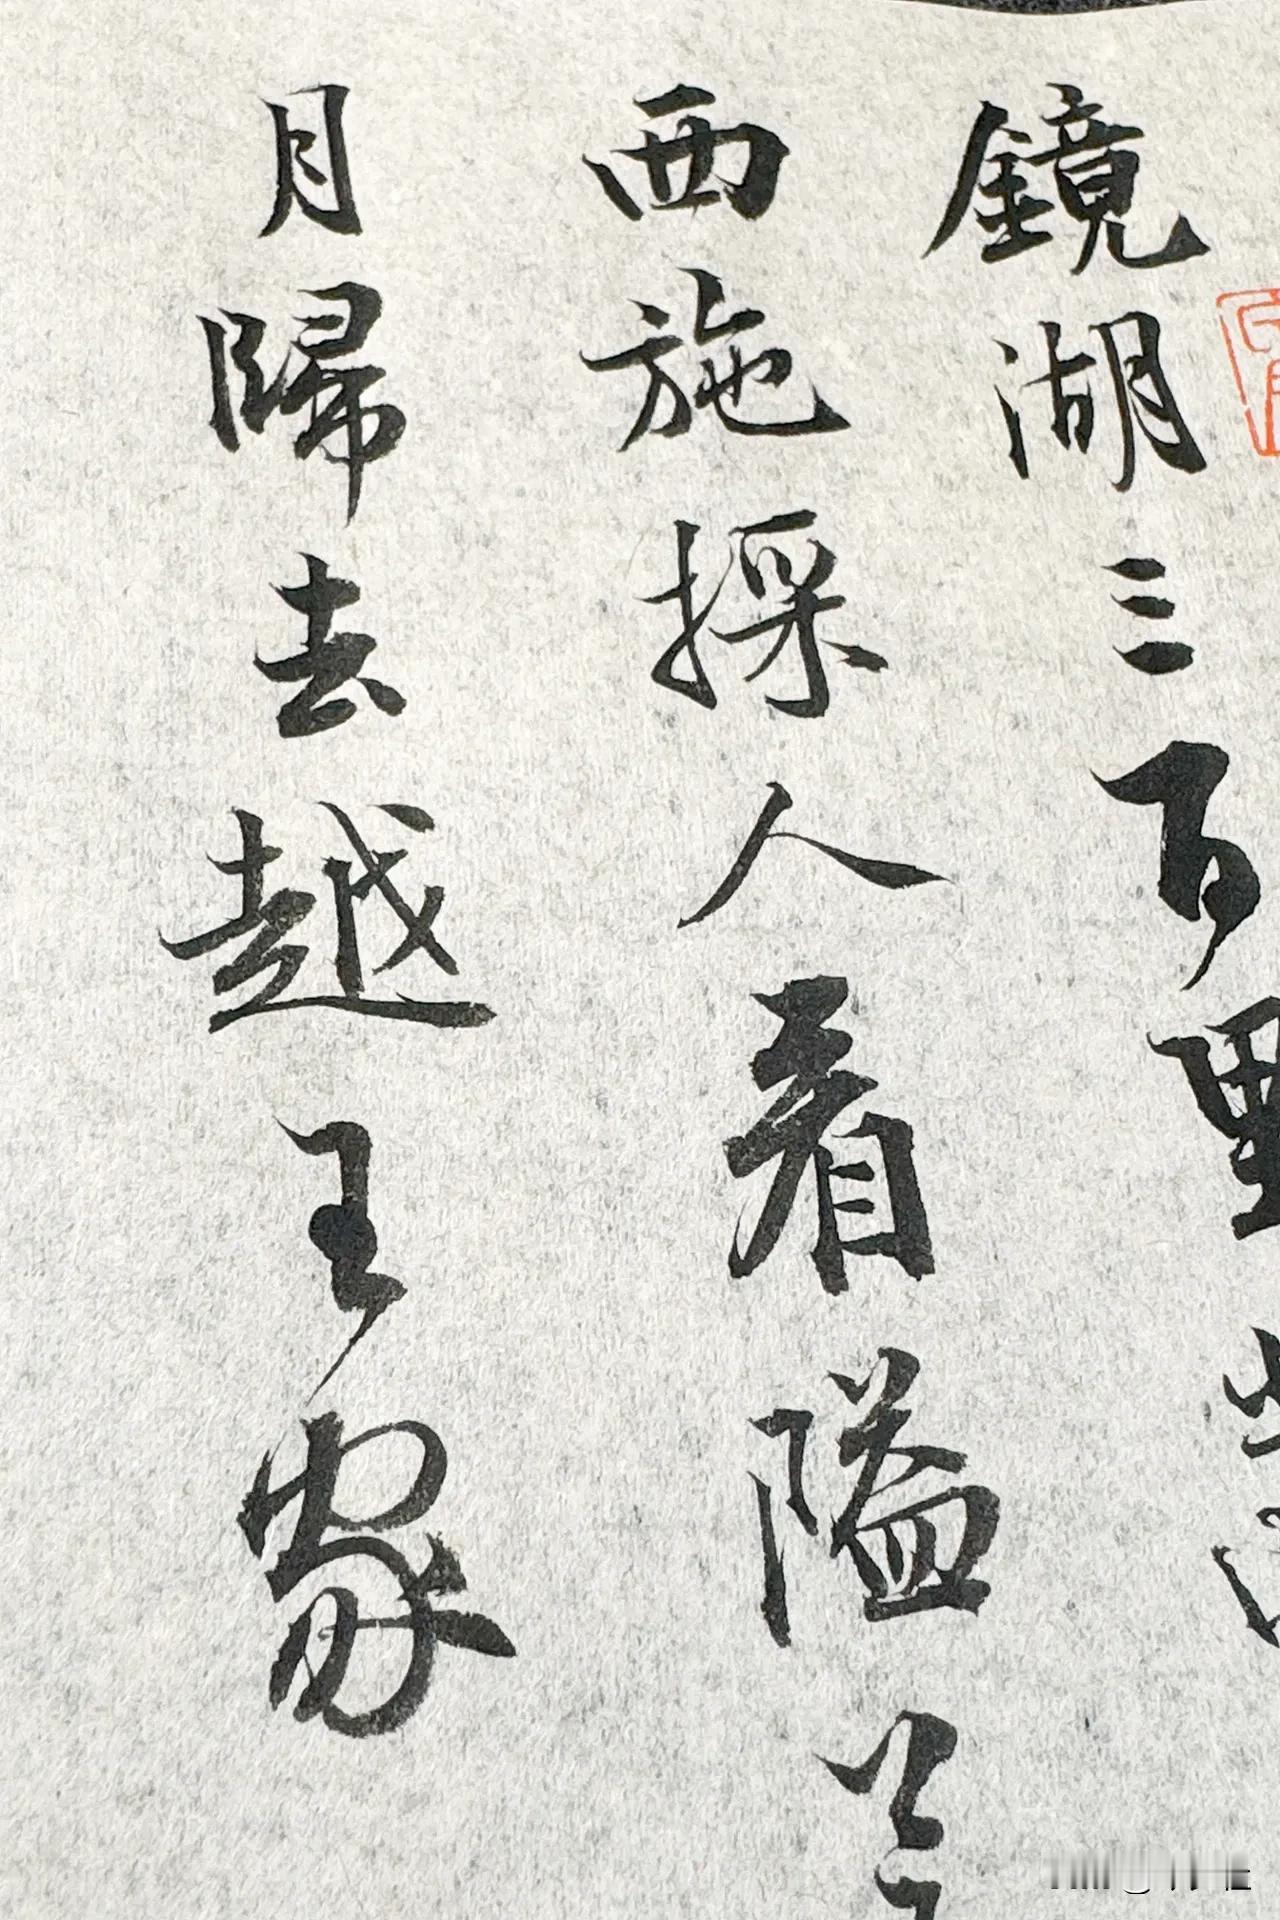 鏡湖三百里
西施採人看隘
月歸去越王家